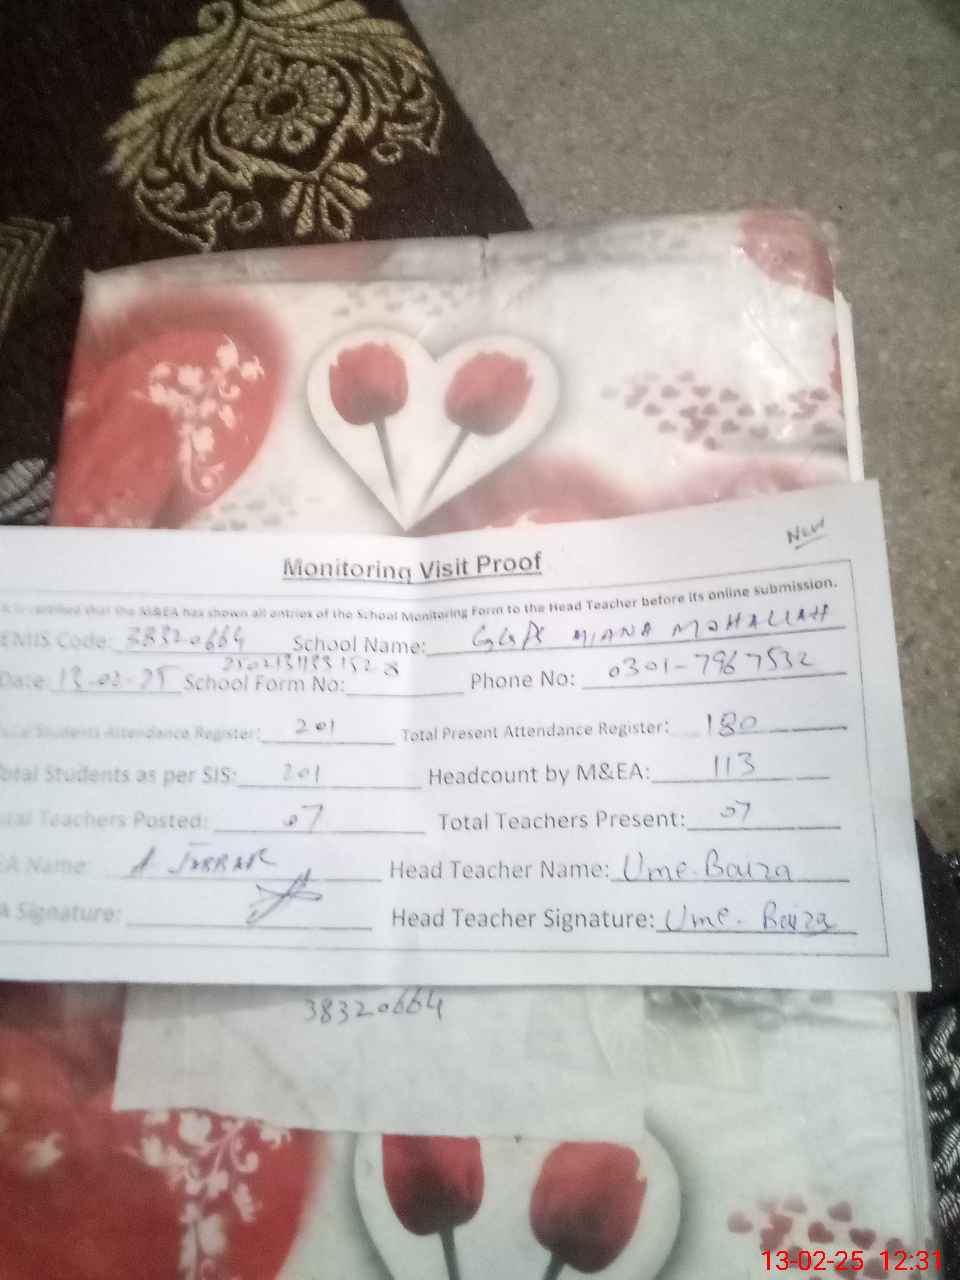 New
Monitoring Visit Proof
that the M&EA has shown all entries of the School Monitoring Form to the Head Teacher before its online submission.
EMIS Code: 38320664 School Name: MIANA MOHALLAH
Date: 13-02-25 School Form No: Phone No: 0301-7967532
Students Attendance Register: 201 Total Present Attendance Register: 180
Total Students as per SIS: 201 Headcount by M&EA: 113
Total Teachers Posted: 07 Total Teachers Present: 07
EA Name: A Head Teacher Name: Ume. Baiza
A Signature: Head Teacher Signature: Ume. Baiza
38320664
13-02-25 12:31